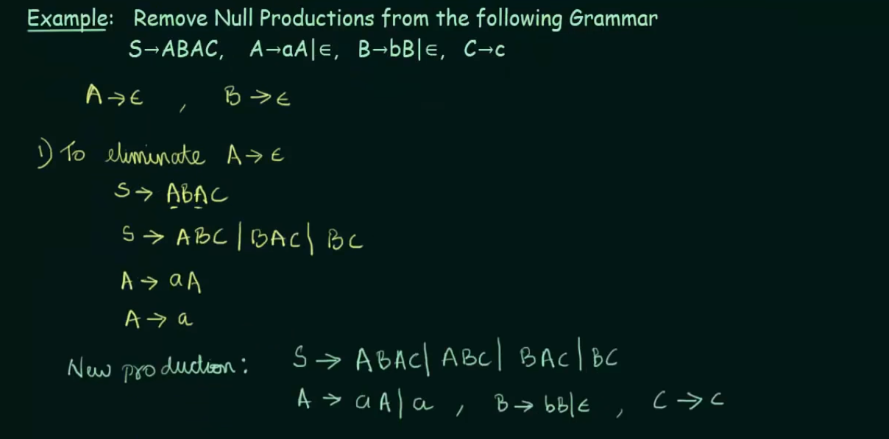 Example: Remove Null Productions from the following Grammar
S→ABAC, A→aA|∈, B→bB|∈, C→c
A→∈ , B→∈
1) To eliminate A→∈
S→ ABAC
S→ ABC | BAC | BC
A→ aA
A→ a
New production: S→ ABAC| ABC| BAC|BC
A→ aA|a , B→ bB|∈ , C→c